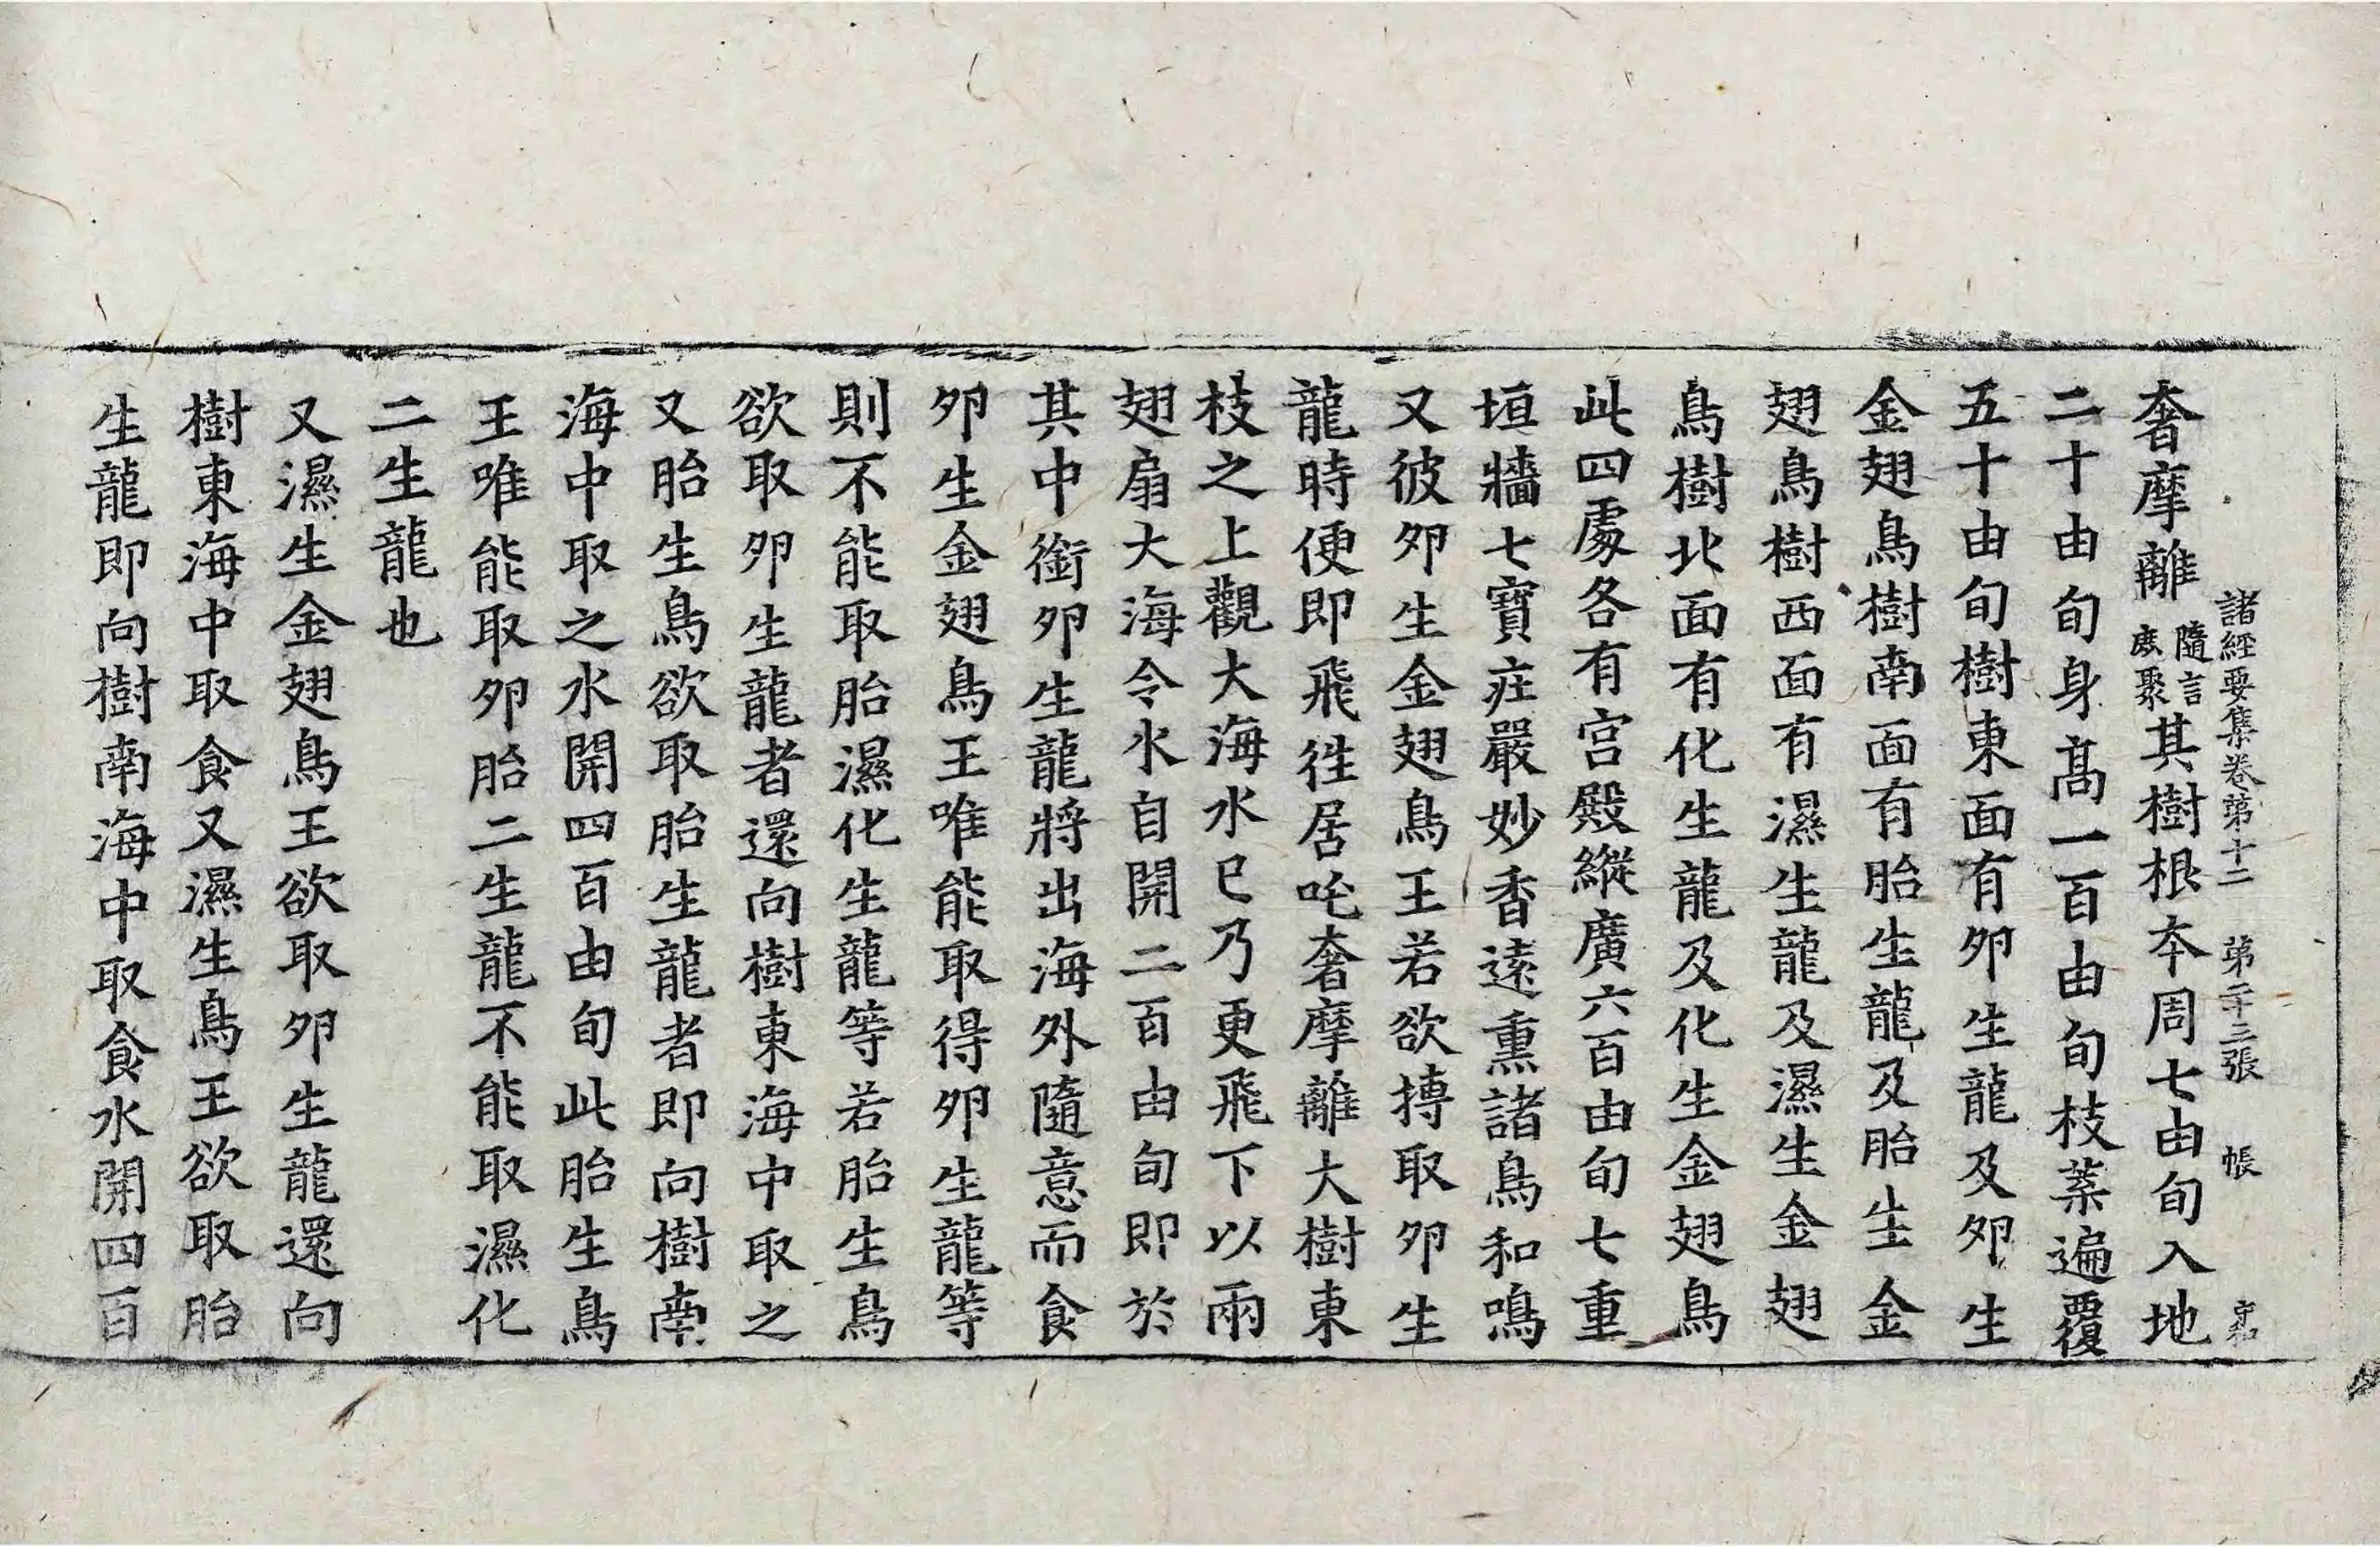 諸經要集卷第十二 第二十三張 帳 守和
奢摩離隨言鹿聚其樹根本周七由旬入地
二十由旬身髙一百由旬枝葉遍覆
五十由旬樹東面有卵生龍及卵生
金翅鳥樹南面有胎生龍及胎生金
翅鳥樹西面有濕生龍及濕生金翅
鳥樹北面有化生龍及化生金翅鳥
此四處各有宫殿縱廣六百由旬七重
垣牆七寶庄嚴妙香逺熏諸鳥和鳴
又彼卵生金翅鳥王若欲搏取卵生
龍時便即飛往居吒奢摩離大樹東
枝之上觀大海水已乃更飛下以兩
翅扇大海令水自開二百由旬即於
其中銜卵生龍將出海外隨意而食
卵生金翅鳥王唯能取得卵生龍等
則不能取胎濕化生龍等若胎生鳥
欲取卵生龍者還向樹東海中取之
又胎生鳥欲取胎生龍者即向樹南
海中取之水開四百由旬此胎生鳥
王唯能取卵胎二生龍不能取濕化
二生龍也
又濕生金翅鳥王欲取卵生龍還向
樹東海中取食又濕生鳥王欲取胎
生龍即向樹南海中取食水開四百